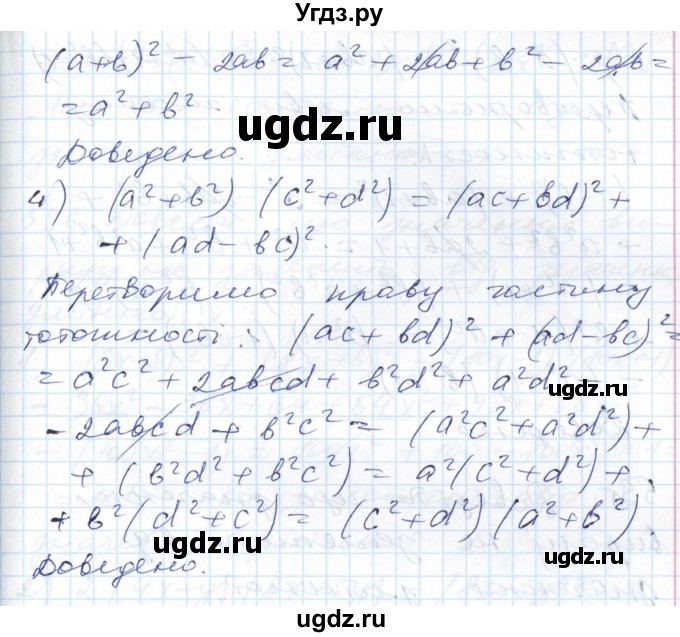 Угдз.ру
(a+b)² - 2ab = a² + 2ab + b² - 2ab =
= a² + b².
Доведено.
4) (a² + b²) (c² + d²) = (ac + bd)² +
+ (ad - bc)².
Перетворимо праву частину
тотожності: (ac + bd)² + (ad - bc)² =
= a²c² + 2abcd + b²d² + a²d² -
- 2abcd + b²c² = (a²c² + a²d²) +
+ (b²d² + b²c²) = a²(c² + d²) +
+ b²(d² + c²) = (c² + d²) (a² + b²)
Доведено.
ugdz.ru
ugdz.ru
ugdz.ru
ugdz.ru
ugdz.ru
ugdz.ru
ugdz.ru